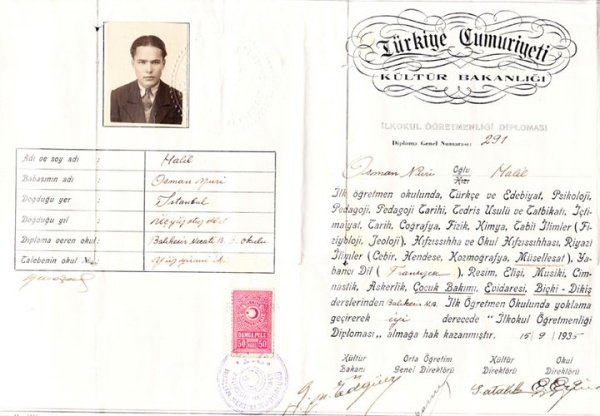 Türkiye Cumuriyeti
KÜLTÜR BAKANLIĞI
İLKOKUL ÖĞRETMENLİĞİ DİPLOMASI
Diploma Genel Numarası: 291
Adı ve soy adı : Halil
Babasının adı : Osman Nuri
Doğduğu yer : İstanbul
Doğduğu yıl :
Diploma veren okul : Balıkesir Necati okulu
Talebenin okul No. :
Osman Nuri Oğlu Halil
Kızı
İlk öğretmen okulunda, Türkçe ve Edebiyat, Psikoloji,
Pedagoji, Pedagoji Tarihi, Tedris Usulü ve Tatbikatı, İçti-
maiyat, Tarih, Coğrafya, Fizik, Kimya, Tabii İlimler (Fi-
ziyoloji, Jeoloji). Hıfzıssıhha ve Okul Hıfzıssıhhası, Riyazi
İlimler (Cebir, Hendese, Kozmografya, Müsellesat), Ya-
bancı Dil (Fransızca), Resim, Elişi, Musiki, Cim-
nastik, Askerlik, Çocuk Bakımı, Evidaresi, Biçki - Dikiş
derslerinden Balıkesir İlk Öğretmen Okulunda yoklama
geçirerek iyi derecede "İlkokul Öğretmenliği
Diploması„ almağa hak kazanmıştır. 15/9/1935
DAMGA PULU
50 50
Kültür Orta Öğretim Kültür Okul
Bakanı Genel Direktörü Direktörü Direktörü